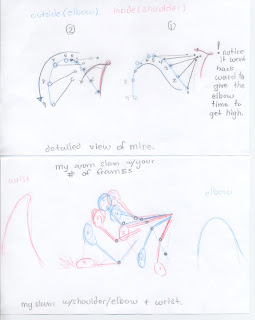 outside (elbow)
inside (shoulder)
②
①
! notice
it went
back
ward to
give the
elbow
time to
get high.
detailed view of mine.
my arm slam w/your
# of frames
wrist
elbow
my slam w/shoulder/elbow + wrist.